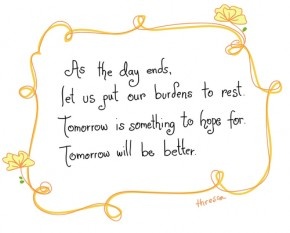 As the day ends,
let us put our burdens to rest.
Tomorrow is something to hope for.
Tomorrow will be better.
threesa